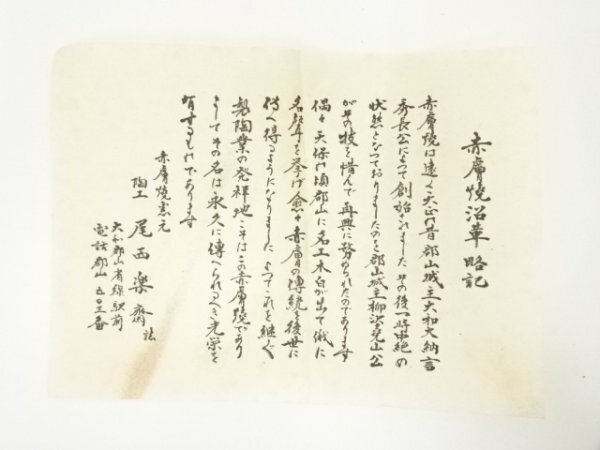 赤膚焼沿革略記
赤膚焼は遠く天正の昔郡山城主大和大納言
秀長公によつて創始されました其の後一時中絶の
状態となつておりましたのを郡山城主柳沢堯山公
が其の技を惜んで再興に努められたのであります
偶々天保の頃郡山に名工木白が出て俄に
名声を挙げ愈々赤膚の傳統を後世に
傳へ得るようになりました よつてこれを継ぐ
製陶業の発祥地こそはこの赤膚焼であり
そしてその名は永久に傳へられるべき光栄を
有するものであります
赤膚焼窯元
陶工 尾西楽斎
大和郡山省線駅前
電話郡山五〇三番